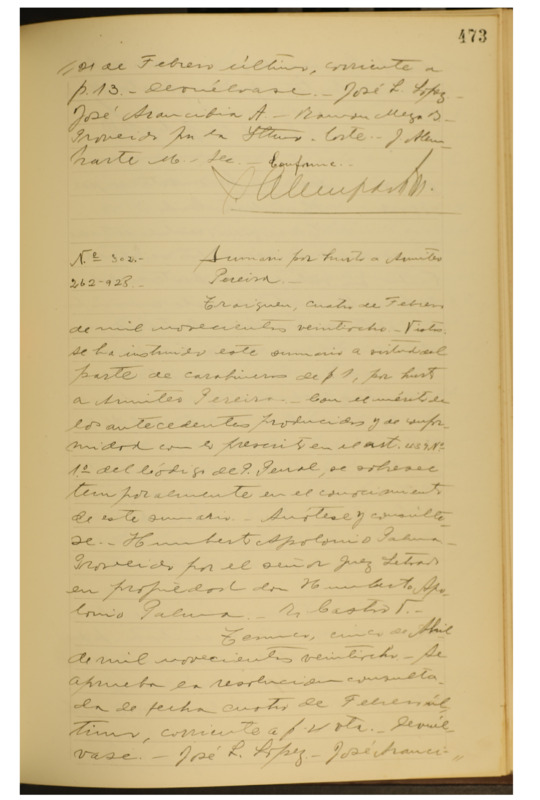 473
de Febrero último, corriente a
p. 13. - Devuélvase. - José L. López -
José Arancibia A - Ramón Meza B -
Proveido por la Iltma. Corte. - J. Alem-
parte M - Sec. - Conforme. -
J Alemparte M.
N.º 302. - Sumario por hurto a Amites
262-928. - Pereira. -
Traiguen, cuatro de Febrero
de mil novecientos veintiocho. - Vistos:
se ha instruido este sumario a virtud del
parte de carabineros de f 1, por hurto
a Amites Pereira. - Con el mérito de
los antecedentes producidos y de confor-
midad con lo prescrito en el art. 439 Nº
1º del Código de P. Penal, se sobresee
temporalmente en el conocimiento
de este sumario. - Anótese y consúlte-
se. - Humberto Apolonio Palma -
Proveido por el señor Juez Letrado
en propiedad don Humberto Apo-
lonio Palma. - Castro T. -
Temuco, cinco de Abril
de mil novecientos veintiocho. - Se
aprueba la resolucion consulta-
da de fecha cuatro de Febrero úl-
timo, corriente a f. 2 vta. - Devuél-
vase. - José L. López - José Aranci-